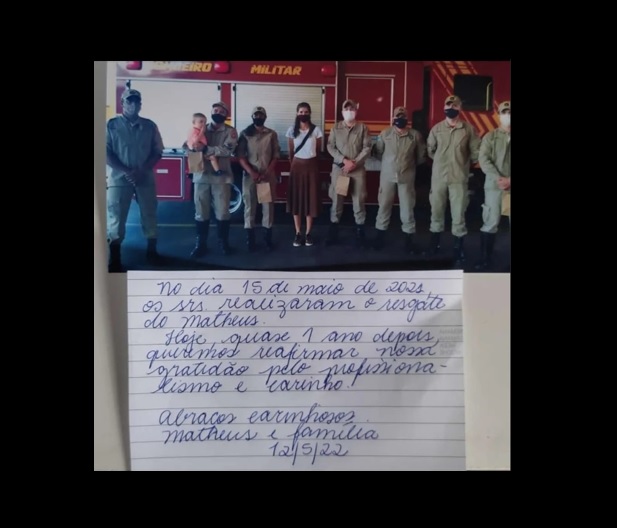 BOMBEIRO MILITAR
No dia 15 de maio de 2021,
os srs. realizaram o resgate
do Matheus.
Hoje, quase 1 ano depois,
queremos reafirmar nossa
gratidão pelo profissiona-
lismo e carinho.
Abraços carinhosos.
Matheus e família
12/5/22